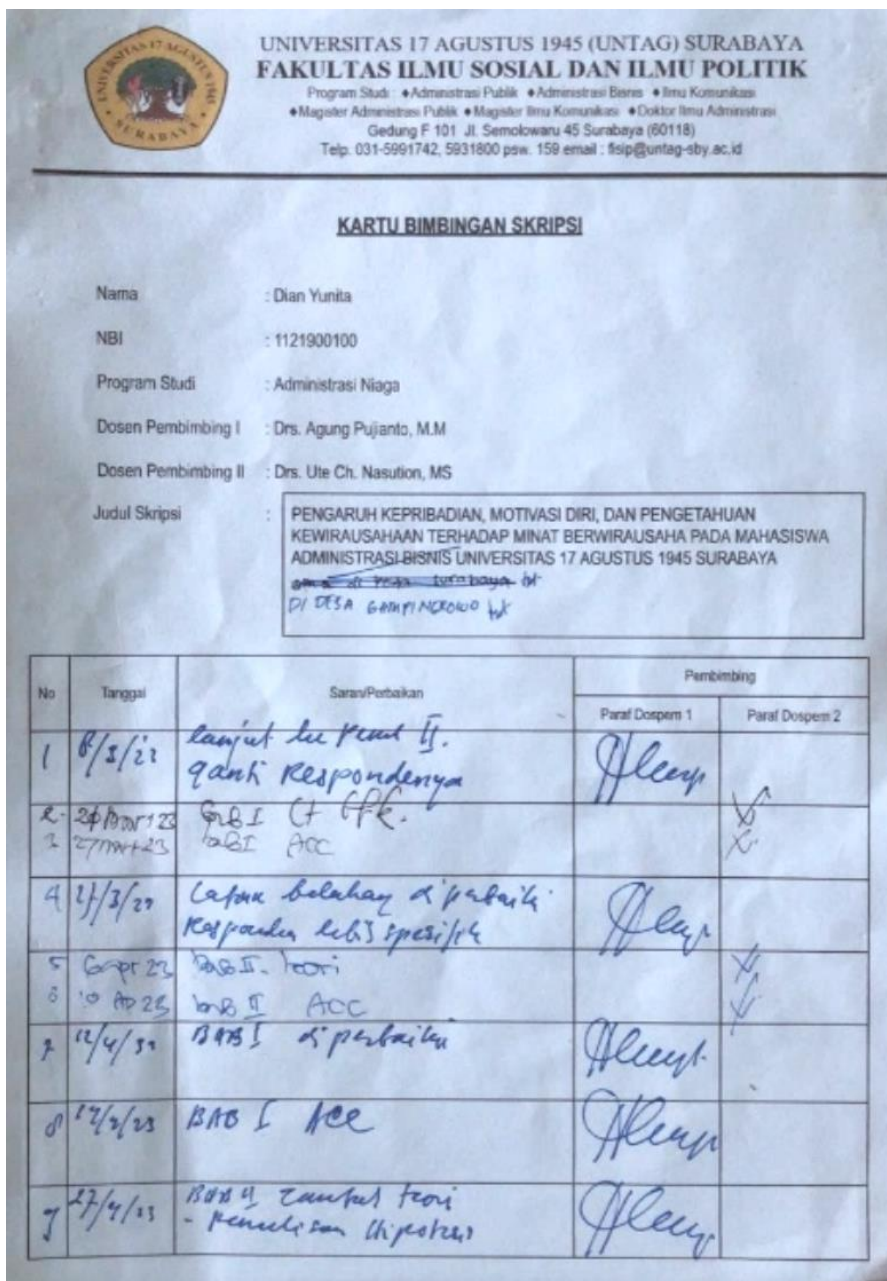 UNIVERSITAS 17 AGUSTUS 1945
SURABAYA
UNIVERSITAS 17 AGUSTUS 1945 (UNTAG) SURABAYA
FAKULTAS ILMU SOSIAL DAN ILMU POLITIK
Program Studi : ♦Administrasi Publik ♦Administrasi Bisnis ♦Ilmu Komunikasi
♦Magister Administrasi Publik ♦Magister Ilmu Komunikasi ♦Doktor Ilmu Administrasi
Gedung F 101 Jl. Semolowaru 45 Surabaya (60118)
Telp. 031-5991742, 5931800 psw. 159 email : fisip@untag-sby.ac.id
KARTU BIMBINGAN SKRIPSI
Nama : Dian Yunita
NBI : 1121900100
Program Studi : Administrasi Niaga
Dosen Pembimbing I : Drs. Agung Pujianto, M.M
Dosen Pembimbing II : Drs. Ute Ch. Nasution, MS
Judul Skripsi : PENGARUH KEPRIBADIAN, MOTIVASI DIRI, DAN PENGETAHUAN
KEWIRAUSAHAAN TERHADAP MINAT BERWIRAUSAHA PADA MAHASISWA
ADMINISTRASI BISNIS UNIVERSITAS 17 AGUSTUS 1945 SURABAYA
di surabaya
DI DESA GAMPINGROWO
No Tanggal Saran/Perbaikan Pembimbing
Paraf Dospem 1 Paraf Dospem 2
1 lanjut ke II.
ganti Respondenya
2.
3 27 23 ACC
4 belakang diperbaiki
Responden lebih spesifik
5 23 BAB II. teori
6 10 Ap 23 BAB II ACC
7 BAB I diperbaiki
8 BAB I ACC
9 BAB II teori
- Penulisan Hipotesis